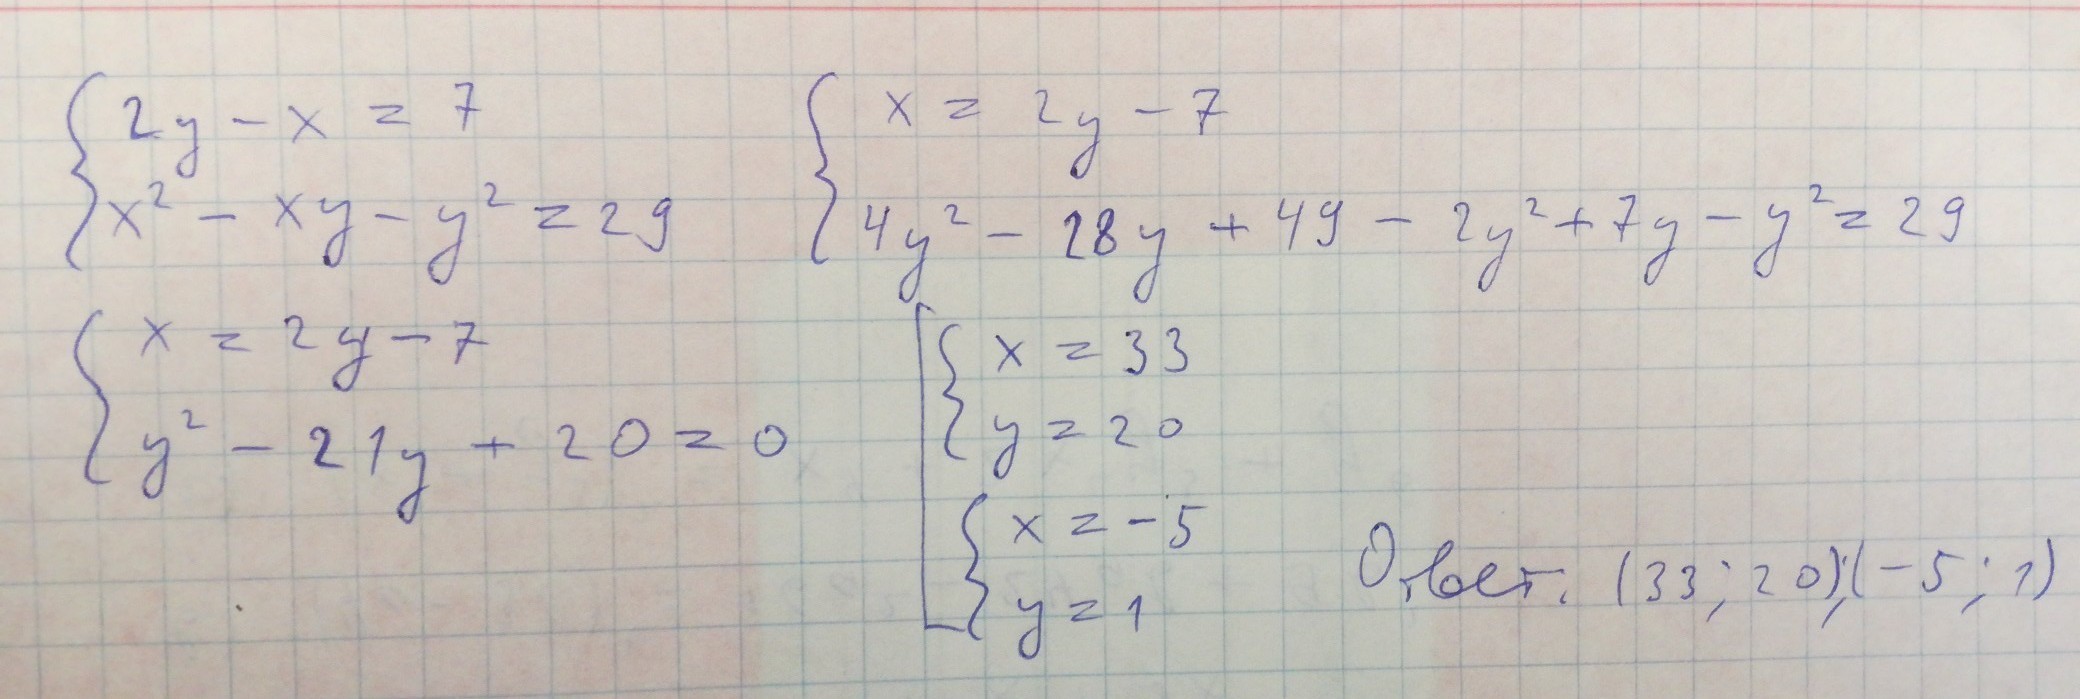 2y - x = 7
x² - xy - y² = 29
x = 2y - 7
4y² - 28y + 49 - 2y² + 7y - y² = 29
x = 2y - 7
y² - 21y + 20 = 0
x = 33
y = 20
x = -5
y = 1
Ответ: (33; 20);(-5; 1)